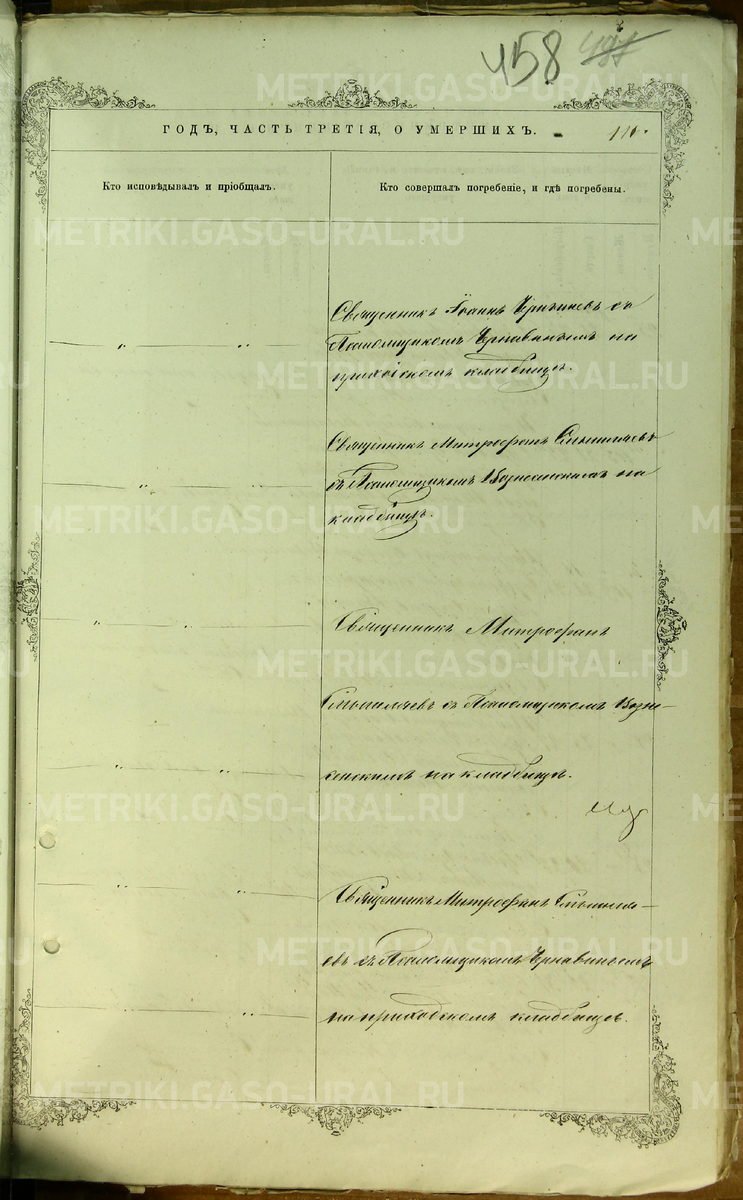 458
ГОДЪ, ЧАСТЬ ТРЕТІЯ, О УМЕРШИХЪ.
116.
Кто исповѣдывалъ и пріобщалъ.
Кто совершалъ погребеніе, и гдѣ погребены.
Священникъ Іоаннъ съ
Псаломщикомъ Чернавинымъ на
приходскомъ кладбищѣ.
Священникъ Митрофанъ Смышляевъ
съ Псаломщикомъ Вознесенскимъ на
кладбищѣ.
Священникъ Митрофанъ
Смышляевъ съ Псаломщикомъ Возне-
сенскимъ на кладбищѣ.
Священникъ Митрофанъ Смышля-
евъ съ Псаломщикомъ Чернавинымъ
на приходскомъ кладбищѣ.
METRIKI.GASO-URAL.RU